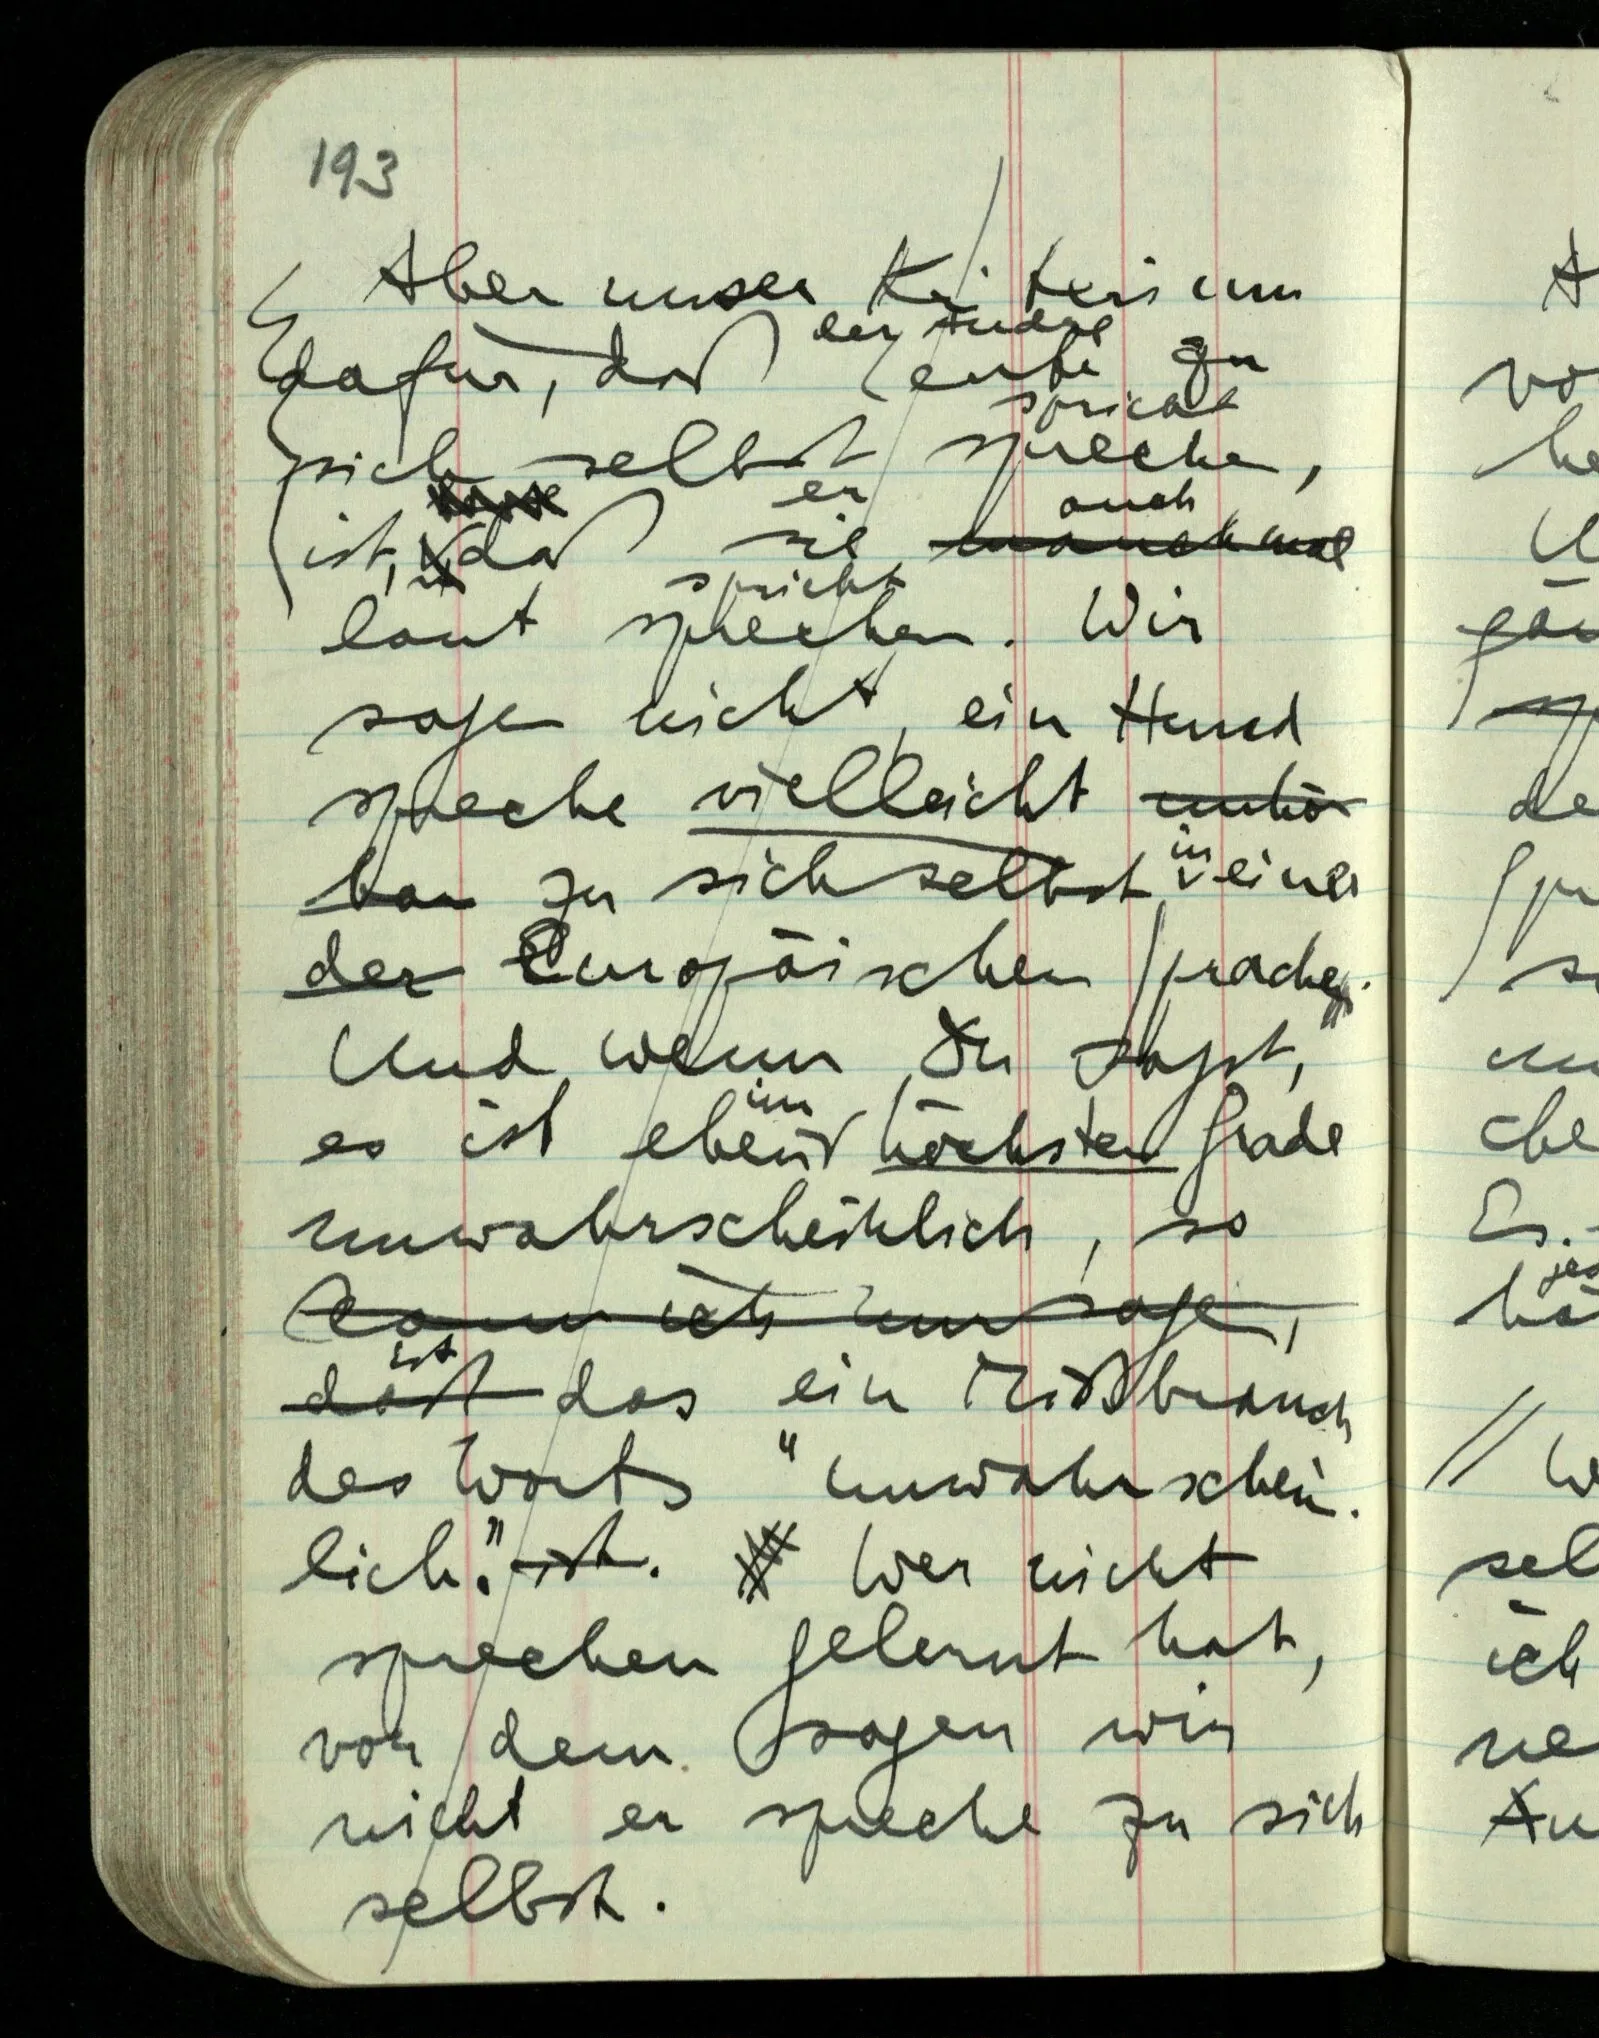 193
Aber unser Kriterium
der Andre
dafür, daß Leute zu
spricht
sich selbst sprechen,
er auch
ist, daß sie manchmal
spricht
laut sprechen. Wir
sagen nicht, ein Hund
spreche vielleicht unhör
in
bar zu sich selbst einer
der Europäischen Sprachen.
Und wenn Du sagst, "
im
es ist eben höchsten Grade
unwahrscheinlich, so
kann ich nur sagen,
ist
daß das ein Mißbrauch
des Worts "unwahrschein-
lich". ist. Wer nicht
sprechen gelernt hat,
von dem sagen wir
nicht er spreche zu sich
selbst.
A
vo
he
U
de
Spr
s
un
che
Es
W
sel
ich
ne
Au